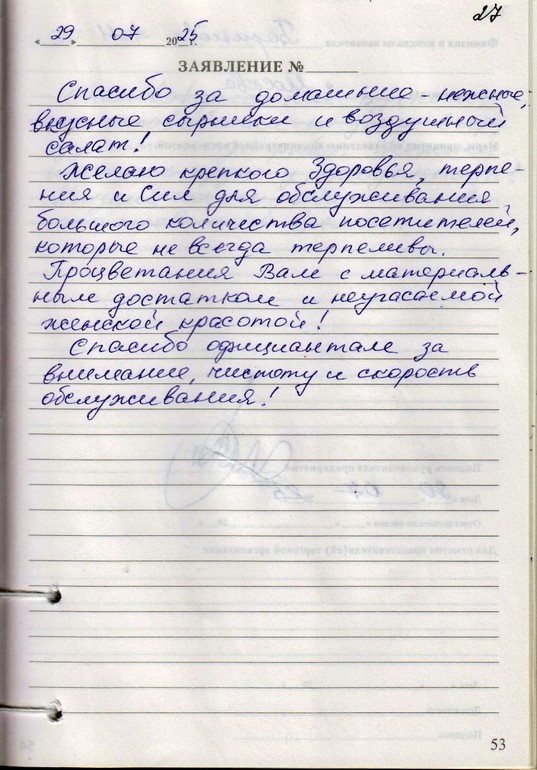 27
«29» 07 2025 г.
ЗАЯВЛЕНИЕ №
Спасибо за домашние - нежные,
вкусные сырники и воздушный
салат!
Желаю крепкого Здоровья, терпе-
ния и Сил для обслуживания
большого количества посетителей,
которые не всегда терпеливы.
Процветания Вам с материаль-
ным достатком и неугасаемой
женской красотой!
Спасибо официантам за
внимание, чистоту и скорость
обслуживания!
53